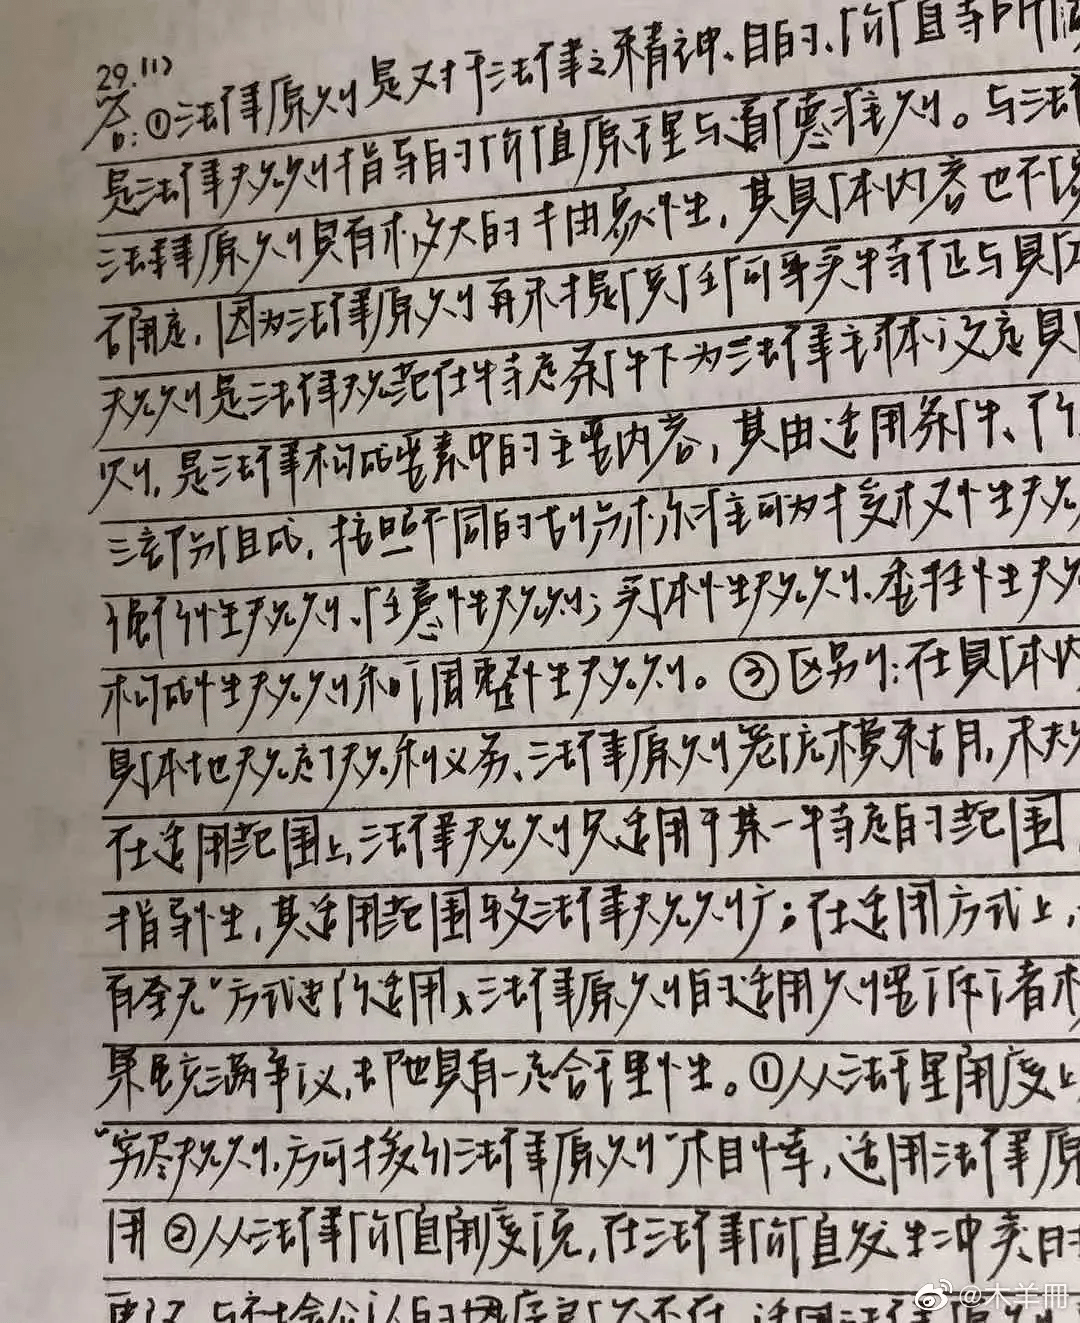 29.(1)
答:①法律原则是对于法律之精神、目的、价值等所
是法律规则指导的价值原理与道德准则。与法
法律原则具有极大的丰富性,其具体内容也不
确定,因为法律原则再未提供任何事实特征与具
规则是法律规范在特定条件下为法律主体设定具
则,是法律构成要素中的主要内容,其由适用条件、行
三部分组成,按照不同的划分标准可为授权性规
强行性规则、任意性规则;实体性规则、委任性规
构成性规则和调整性规则。③区别:在具体内
具体地规定了权利义务、法律原则笼统模糊,未规
在适用范围上,法律规则只适用于某一特定的范围
指导性,其适用范围较法律规则广;在适用方式上,
有全无"方式进行适用、法律原则的适用则要
果虽充满争议,却也具有一定合理性。①从法理角度上
"穷尽规则,方可援引法律原则"相悖,适用法律原
用②从法律价值角度说,在法律价值发生冲突时
与社会公认的 适用法律原则
@木羊冊